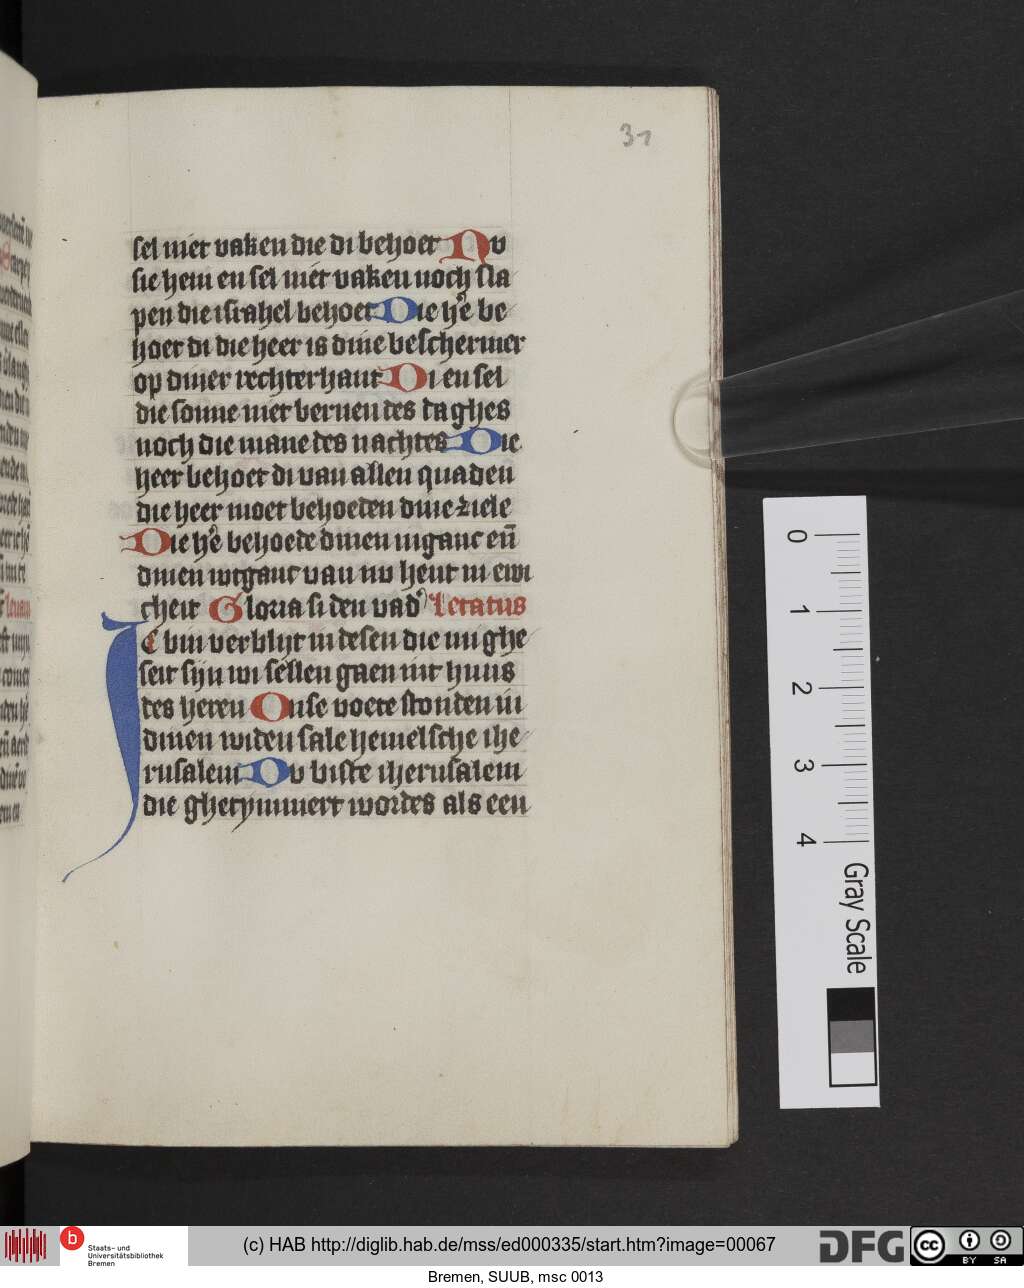 31
sel niet vaken die di behoet Nv
sie hem en sel niet vaken noch sla
pen die israhel behoet Die he͛ be
hoet di die heer is dine beschermer
op diner rechterhant Di en sel
die sonne niet bernen des daghes
noch die mane des nachtes Die
heer behoet di van allen quaden
die heer moet behoeden dine ziele
Die he͛ behoede dinen inganc en̄
dinen wtganc van nv hent in ewi
cheit Gloria si den vad͛ Letatus
Ic bin verblijt in desen die mi ghe
seit sijn wi sellen gaen int huus
des heren Onse voete stonden in
dinen widen sale hemelsche ihe
rusalem Dv biste iherusalem
die ghetymmert wordes als een
0
1
2
3
4
Gray Scale
b
Staats- und
Universitätsbibliothek
Bremen
(c) HAB http://diglib.hab.de/mss/ed000335/start.htm?image=00067
DFG
cc
BY SA
Bremen, SUUB, msc 0013